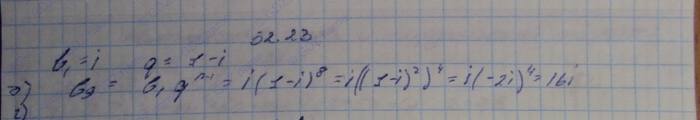 52.23
b₁ = i q = 1-i
b₉ = b₁ qⁿ⁻¹ = i(1-i)⁸ = i((1-i)²)⁴ = i(-2i)⁴ = 16i